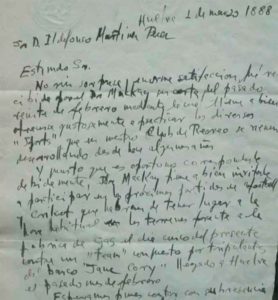 Huelva 1 de marzo 1888
Sr. D. Ildefonso Martínez
Estimado Sr.
No sin sorpresa y enorme satisfacción, he re
cibido por el Dr. Mackay su carta del pasado
de febrero mediante la que
gustosamente a practicar los diversos
"Sports" que en nuestro Club de Recreo se vienen
desarrollando desde hace algunos años
Y puesto que es oportuno corresponderle
debidamente, Dr. Mackay tiene a bien invitarle
a participar en el próximo partido de
y Cricket que habrán de tener lugar a la
en los terrenos frente a la
fábrica de Gas el día cinco del presente
contra un "team" compuesto por tripulantes
del barco "Jane Cory" llegado a Huelva
el pasado mes de febrero
Esperamos pues contar con su presencia